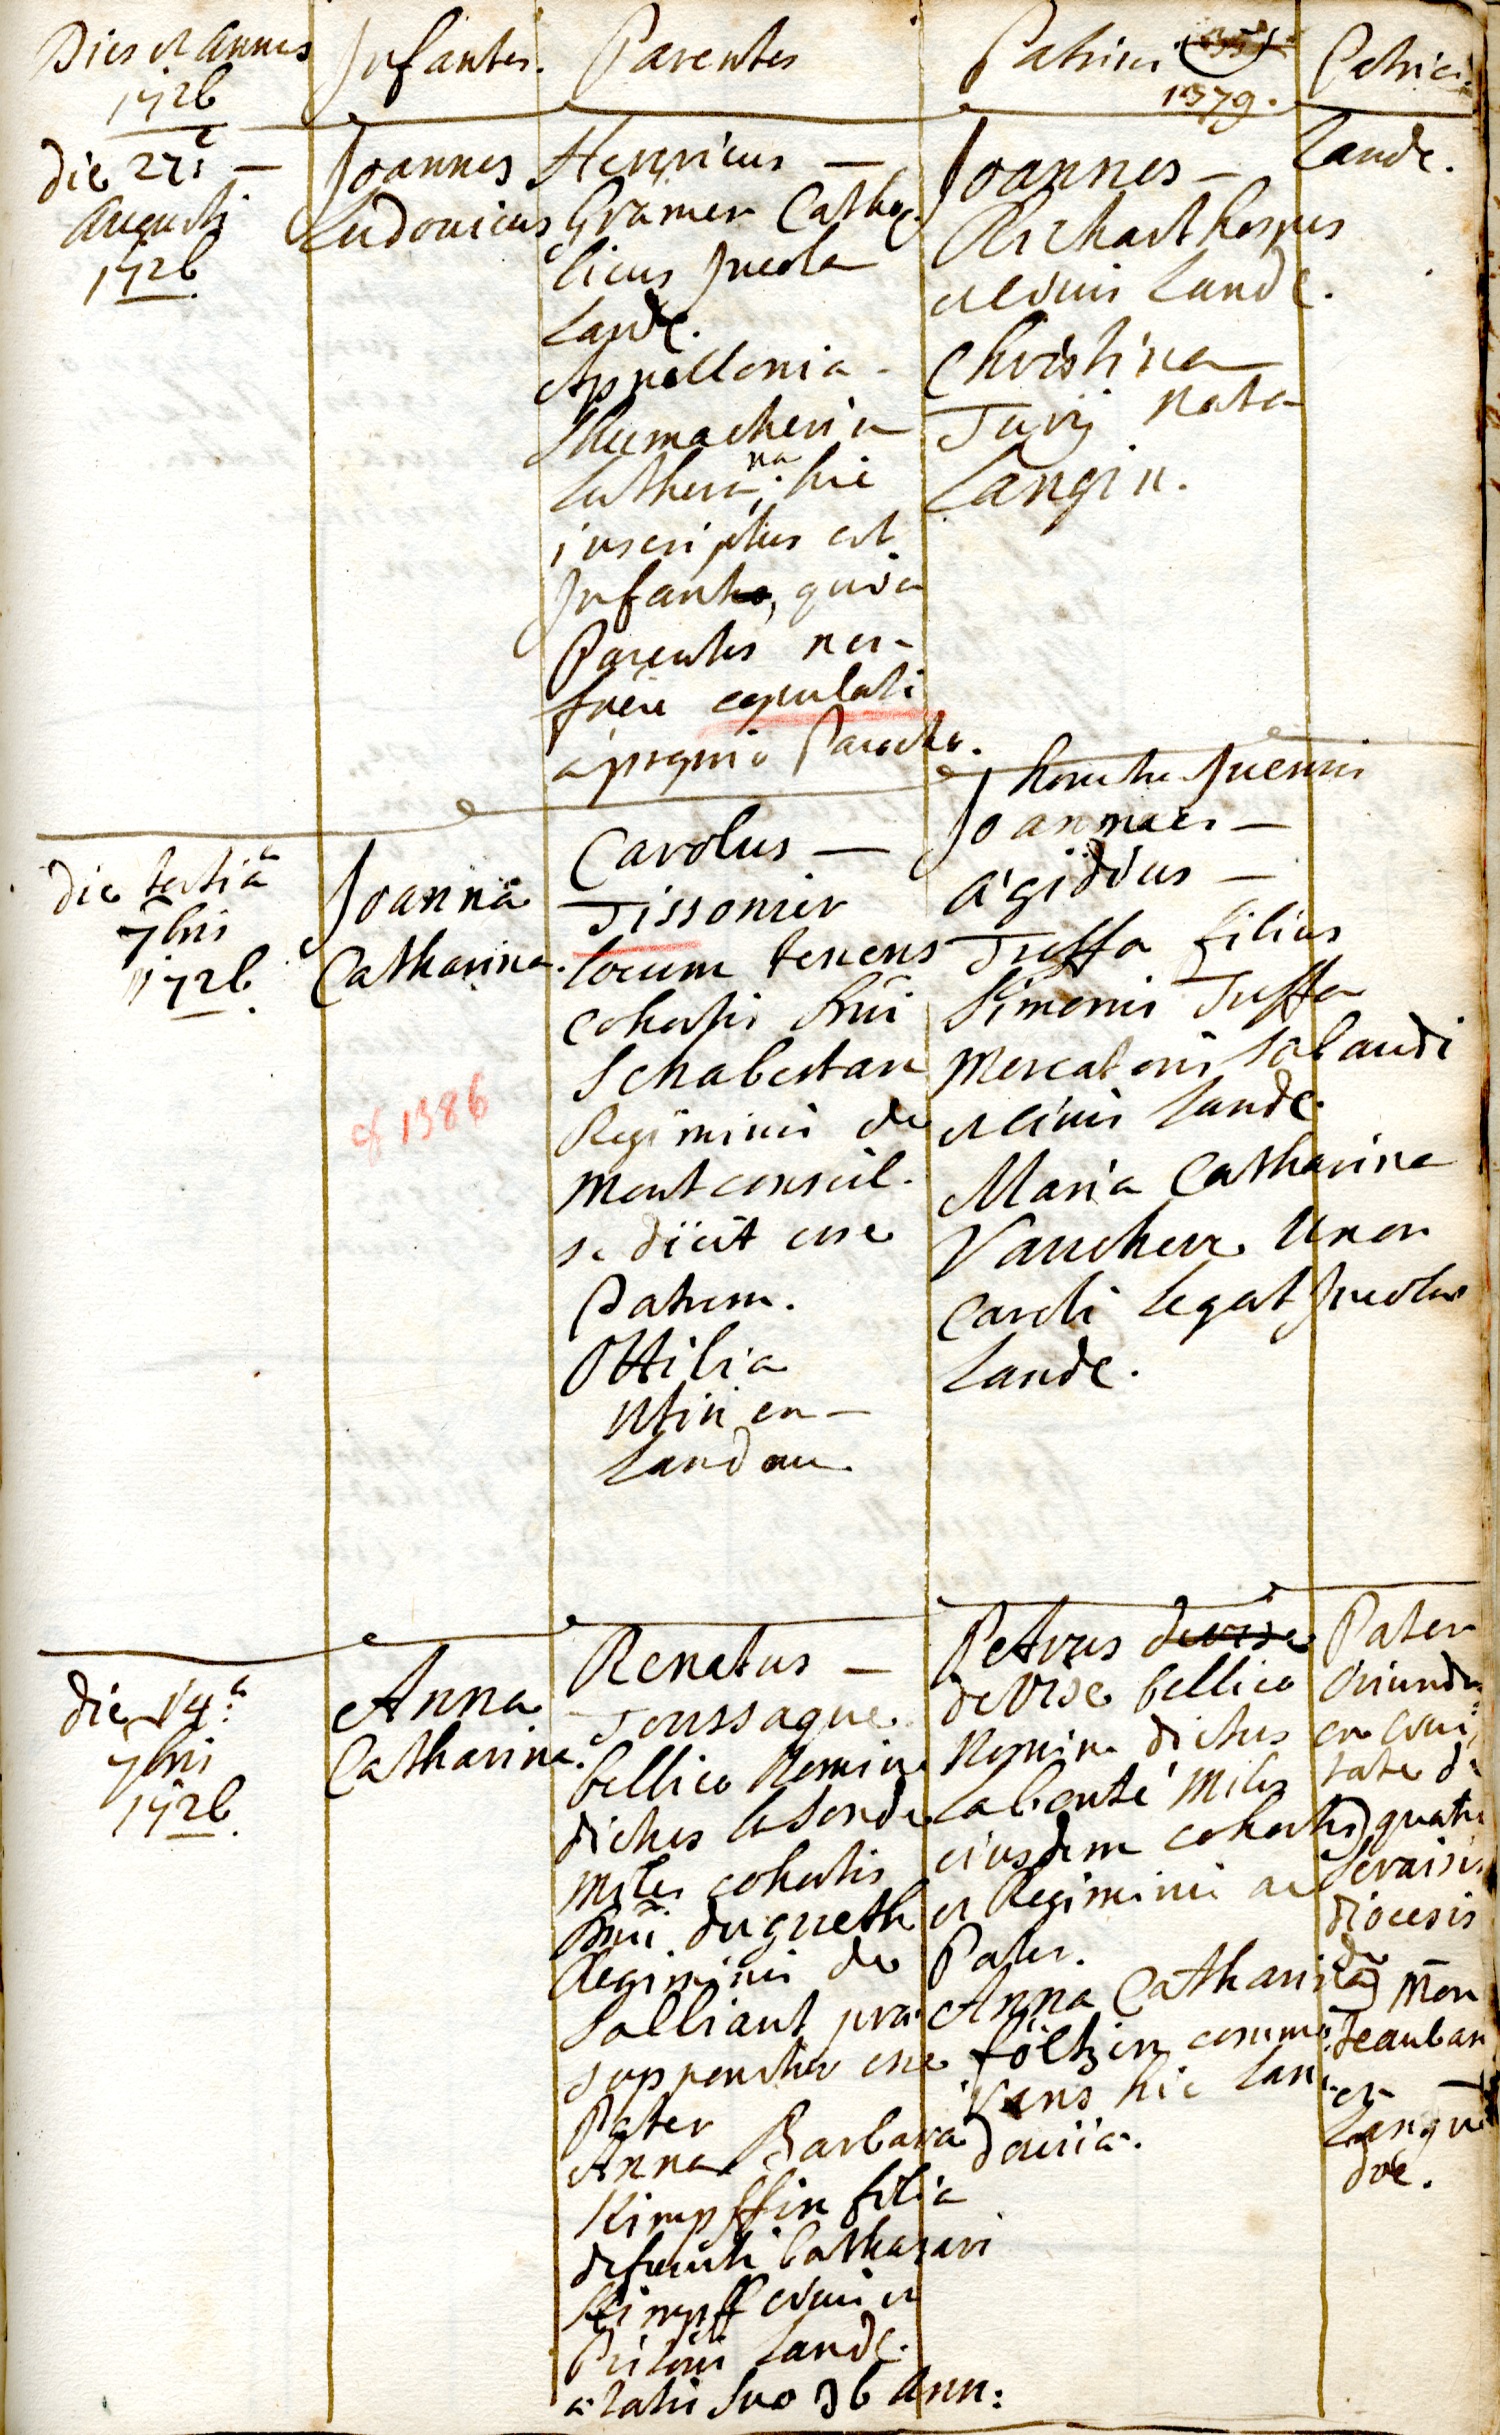 Dies et Annus
1726
Infantes.
Parentes
Patrini
1379.
Patrini
die 27 —
Augusti
1726.
Joannes
Ludovicus
Henricus —
Gramer Catho-
licus Incola
Land.
Appollonia -
Shumacherin
Luthera na; hic
inscriptus est
Infans, quia
Parentes non
fuere copulati
a proprio Parocho.
Joannes —
Richart hospes
et civis Land.
Christina
Turij nata
Langin.
Land.
die tertia
7bris
1726.
Joanna
Catharina.
of 1386
Carolus —
Tissonier
locum tenens
cohortis Dni
Schabestan
Regiminis de
Montconseil.
se dicit esse
Patrem.
Ottilia
Utin en —
Landau.
honestus Juvenis
Joannes —
Ægidius —
Truffa filius
Simonis Truffa
Mercatoris Salandi
et civis Land.
Maria Catharina
Vaucherr Uxor
Caroli Legat Incola
Land.
die 14 a
7bris
1726.
Anna
Catharina.
Renatus —
Toussaque
bellico Nomine
dictus la Sonde
Miles cohortis
Dni dugueth
Regiminis de
Salliant præ
supponitur esse
Pater
Anna Barbara
Kimpffin filia
defuncti Balthasari
Kimpff civis et
Pistoris Land.
ætatis suæ 36 Ann:
Petrus
deVise bellico
Nomine dictus
Labonté Miles
eiusdem cohortis
et Regiminis ac
Pater.
Anna Catharina
föltzin commo-
rans hic Lan-
davii.
Pater
Oriundus
ex Civi-
tate de
quatre
diocesis
de
Mon
teauban
en —
Langue
doc.